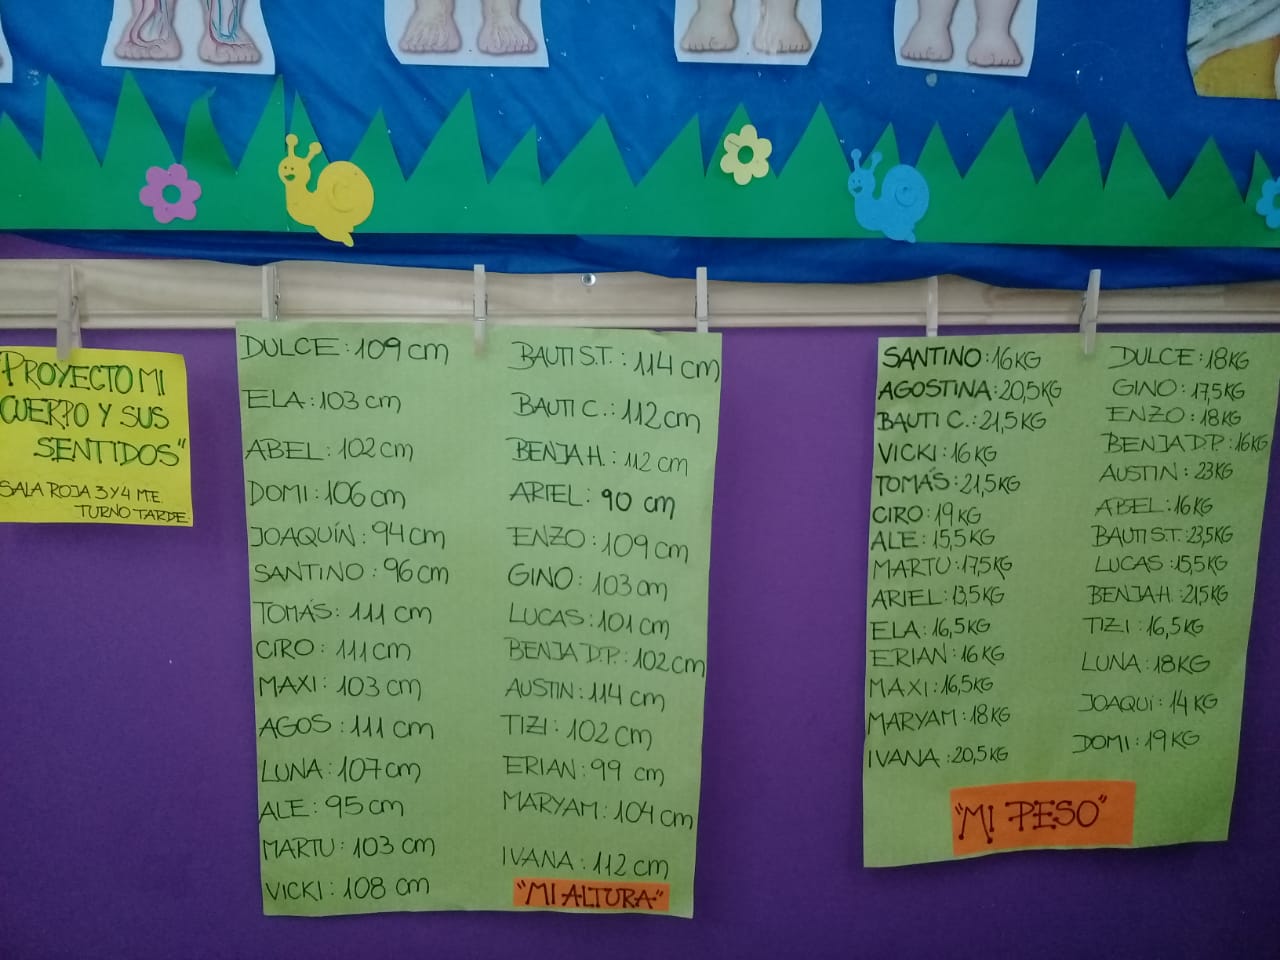 "PROYECTO MI
CUERPO Y SUS
SENTIDOS"
SALA ROJA 3 Y 4 ME.
TURNO TARDE.
DULCE: 109 cm
ELA: 103 cm
ABEL: 102 cm
DOMI: 106 cm
JOAQUÍN: 94 cm
SANTINO: 96 cm
TOMÁS: 111 cm
CIRO: 111 cm
MAXI: 103 cm
AGOS: 111 cm
LUNA: 107 cm
ALE: 95 cm
MARTU: 103 cm
VICKI: 108 cm
BAUTI S.T.: 114 cm
BAUTI C.: 112 cm
BENJA H.: 112 cm
ARIEL: 90 cm
ENZO: 109 cm
GINO: 103 cm
LUCAS: 101 cm
BENJA D.P.: 102 cm
AUSTIN: 114 cm
TIZI: 102 cm
ERIAN: 99 cm
MARYAM: 104 cm
IVANA: 112 cm
"MI ALTURA"
SANTINO: 16 KG
AGOSTINA: 20,5 KG
BAUTI C.: 21,5 KG
VICKI: 16 KG
TOMÁS: 21,5 KG
CIRO: 19 KG
ALE: 15,5 KG
MARTU: 17,5 KG
ARIEL: 13,5 KG
ELA: 16,5 KG
ERIAN: 16 KG
MAXI: 16,5 KG
MARYAM: 18 KG
IVANA: 20,5 KG
DULCE: 18 KG
GINO: 17,5 KG
ENZO: 18 KG
BENJA D.P.: 16 KG
AUSTIN: 23 KG
ABEL: 16 KG
BAUTI S.T.: 23,5 KG
LUCAS: 15,5 KG
BENJA H.: 21,5 KG
TIZI: 16,5 KG
LUNA: 18 KG
JOAQUI: 14 KG
DOMI: 19 KG
"MI PESO"